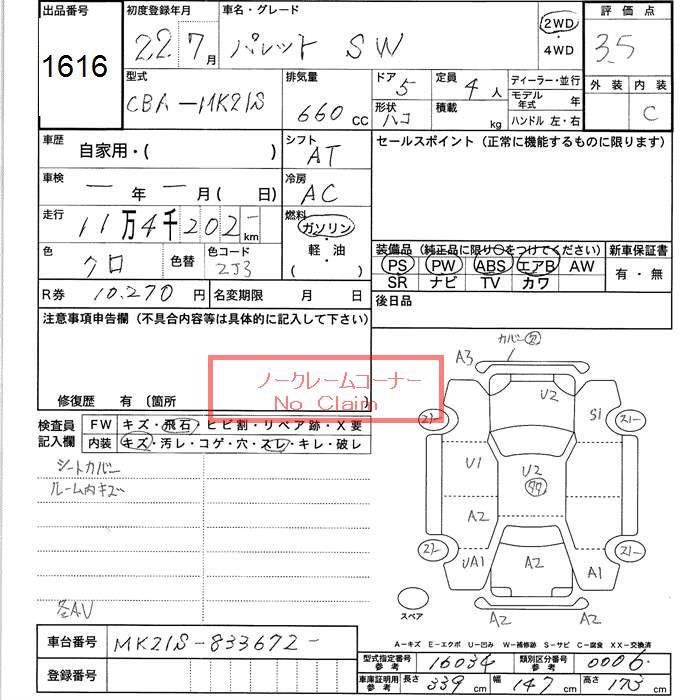 出品番号 初度登録年月 車名・グレード 2WD 評価点
1616 22 7月 パレット SW ・ 3.5
4WD
型式 排気量 ドア 5 定員 4人 ディーラー・並行 外装 内装
CBA-MK21S 660 CC 形状 ハコ 積載 kg モデル年式 年 C
ハンドル 左・右
車歴 自家用・( ) シフト AT セールスポイント(正常に機能するものに限ります)
車検 ー年ー月( 日) 冷房 AC
走行 11万4千202- km 燃料 ガソリン
色 クロ 色替 色コード ZJ3 ・軽・油 ( )
装備品(純正品に限り○をつけてください) 新車保証書
PS PW ABS エアB AW 有・無
SR ナビ TV カワ
R券 10,270円 名変期限 月 日 後日品
注意事項申告欄(不具合内容等は具体的に記入して下さい)
ノークレームコーナー
No Claim
修復歴 有 〔箇所
検査員記入欄 FW キズ・飛石・ヒビ割・リペア跡・X要
内装 キズ・汚レ・コゲ・穴・スレ・キレ・破レ
シートカバー
ルーム内キズ
各AV
カバー
A3
U2
S1
U1
U2
A2
UA1
A2
A1
A2
A2
スペア
A-キズ E-エクボ U-凹み W-補修跡 S-サビ C-腐食 XX-交換済
車台番号 MK21S-833672-
登録番号
型式指定番号参考 16034 類別区分番号参考 0006
車庫証明用参考 長さ 339cm 幅 147cm 高さ 173cm